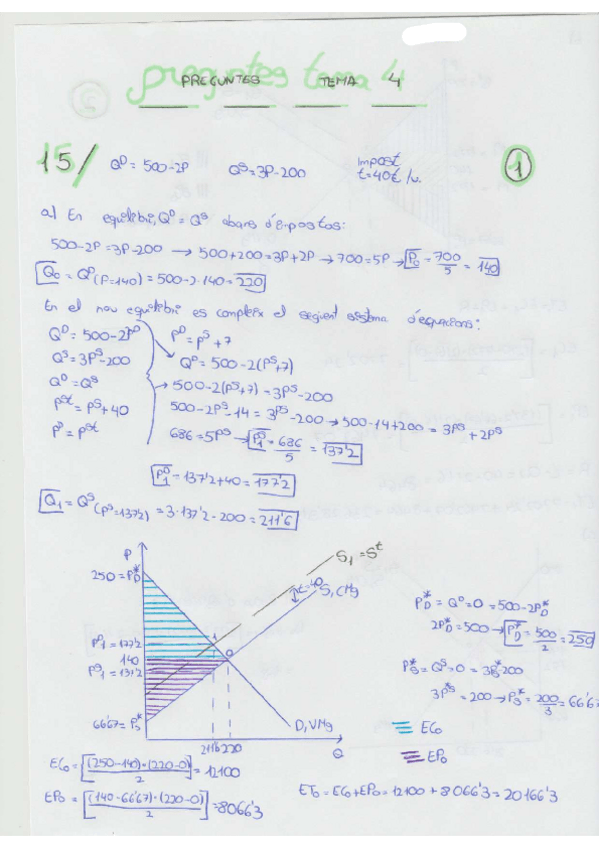 preguntes tema 4
PREGUNTES TEMA 4
15/ Q^D = 500-2P Q^S = 3P-200 Impost t=40€/u. 1
a) En equilibri, Q^D = Q^S abans d'impostos:
500-2P = 3P-200 → 500+200 = 3P+2P → 700 = 5P → P_0 = 700/5 = 140
Q_0 = Q^D (P=140) = 500-2·140 = 220
En el nou equilibri es compleix el següent sistema d'equacions:
Q^D = 500-2P^D P^D = P^S+7
Q^S = 3P^S-200 Q^D = 500-2(P^S+7)
Q^D = Q^S 500-2(P^S+7) = 3P^S-200
P^St = P^S+40 500-2P^S-14 = 3P^S-200 → 500-14+200 = 3P^S+2P^S
P^D = P^St 686 = 5P^S → P^S_1 = 686/5 = 137'2
P^D_1 = 137'2+40 = 177'2
Q_1 = Q^S (P^S=137'2) = 3·137'2-200 = 211'6
P
S_1 = S^t
t=40
S, CMg
250 = P^*_D
P^D_1 = 177'2
140
P^S_1 = 137'2
66'67 = P^*_S
1
0
D, VMg
211'6 220
Q
P^*_D = Q^D = 0 = 500-2P^*_D
2P^*_D = 500 → P^*_D = 500/2 = 250
P^*_S = Q^S = 0 = 3P^*_S-200
3P^*_S = 200 → P^*_S = 200/3 = 66'67
EC_0
EP_0
EC_0 = [(250-140)·(220-0)/2] = 12100
EP_0 = [(140-66'67)·(220-0)/2] = 8066'3
ET_0 = EC_0+EP_0 = 12100 + 8066'3 = 20166'3